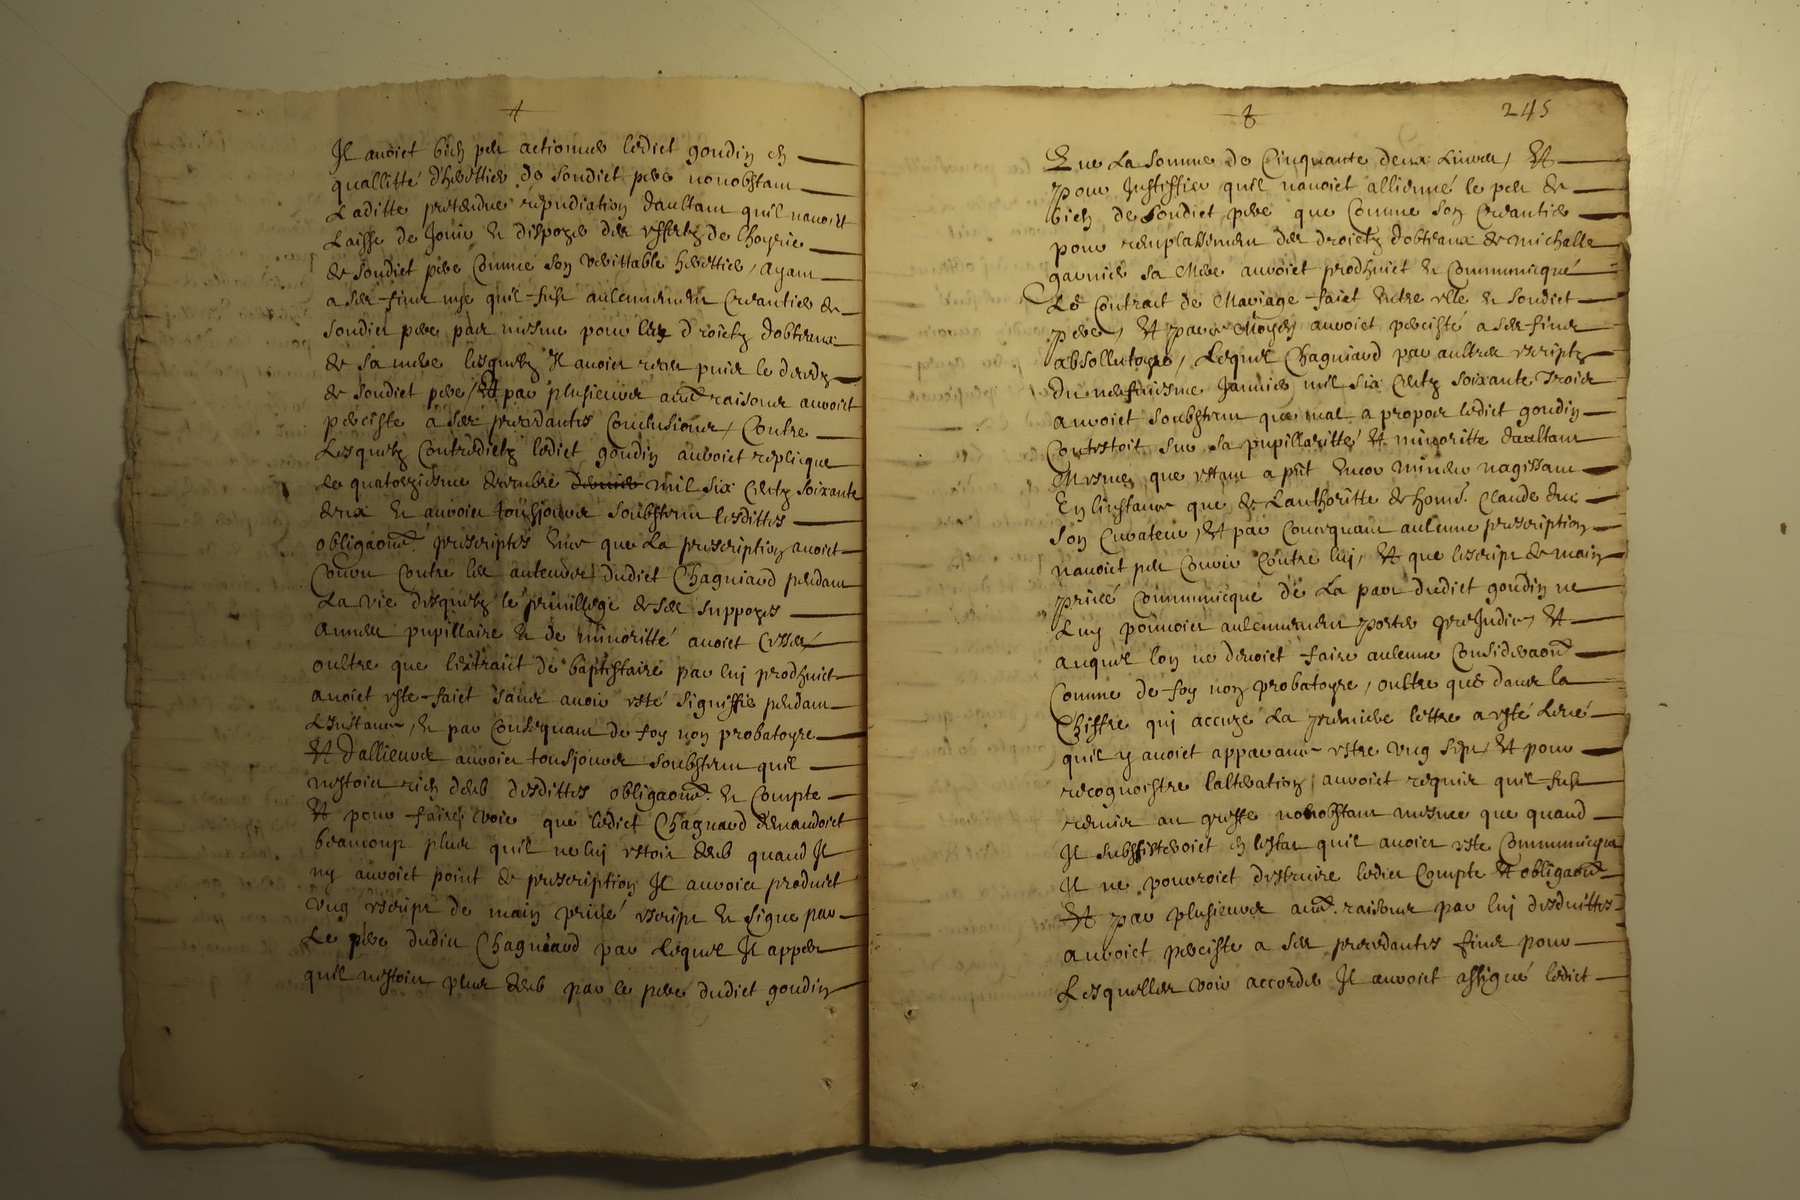 Il auoict bien peu actionner ledict goudin en
quallitté d'herettier de sondict pere nonobstant
Laditte pretendue repudiation daultant quil nauoict
Laisse de Jouir et dispozer des effectz de lhoyrie
de sondict pere Comme son veritable herettier, ayant
a ses fins nye quil fust aulcunement Creantier de
sondict pere pas mesme pour les droictz dobteaux
de sa mere lesquelz Il auoict
de sondict pere, Et par plusieurs aultres raisons auroict
perciste a ses precedantes Conclusions, Contre
Lesquelz Contredictz ledict goudin auroict replicque
le quatorziesme decembre mil six Centz soixante
deux et auroict tousjours soubstenu lesdittes
obligaons prescriptes Enx que La prescription auoict
Couru Contre les autheurs dudict Chagniard pendant
La vie desquelz le priuillege de ses suppozes
annees pupillaire et de minoritté auoict Cesser
oultre que lextraict de baptistaire par luy prodhuict
auoict este faict sans auoir esté signiffie pendant
Linstance, Et par Consequant de foy non probatoyre
Et Dallieurs auroict tousjours soubstenu quil
nestoict rien deub desdittes obligaons et Compte
Et pour faire voir que ledict Chagniard demandoict
beaucoup plus quil ne luy estoit deub quand Il
ny auroict point de prescription Il auroict produict
vng escript de main priué escript et signe par
Le pere dudict Chagniard par Lequel Il appert
quil nestoict plus deub par le pere dudict goudin
8
245
Que La somme de Cinquante deux Liures, Et
pour Justiffier quil nauoict allienné le peu de
bien de sondict pere que Comme son Creantier
pour remplassement des droictz dobteaux de michelle
garnier sa Mere auroict prodhuict et Communicqué
Le Contrait de Mariage faict Entre elle et sondict
pere, Et par Moyen auroict percisté a ses fins
absollutoyre, Lequel Chagniard par aultres escriptz
du neufuiesme Januier mil six Centz soixante Trois
auroict soubstenu que mal a propos ledict goudin
Contestoit sur sa pupillaritté Et minoritte daultant
Mesmes que estant a pnt Encor mineur nagissant
En linstance que de Lauthoritte de honn. Claude duc
son Curateur, Et par Consequant aulcune prescription
nauoict peu Courir Contre luy, Et que lescript de main
priué Communicque de La part dudict goudin ne
Luy pouuoict aulcunement porter preJudice, Et
auquel lon ne deuoict faire aulcune Consideraon
Comme de foy non probatoyre, oultre que dans la
Chiffre qui accuze La premiere lettre a esté Leué
quil y auoict apparance estre vng sept, Et pour
recognoistre lalteration, auroict requis quil fust
remis au greffe nonobstant mesme que quand
Il subsisteroict en lestat quil auoict este Communicque
Il ne pouuroict destruire ledict Compte Et obligaons
Et par plusieurs aultres raisons par luy desduittes
auroict perciste a ses precedantes fins pour
Lesquelles voir accorder Il auroict assigné ledict